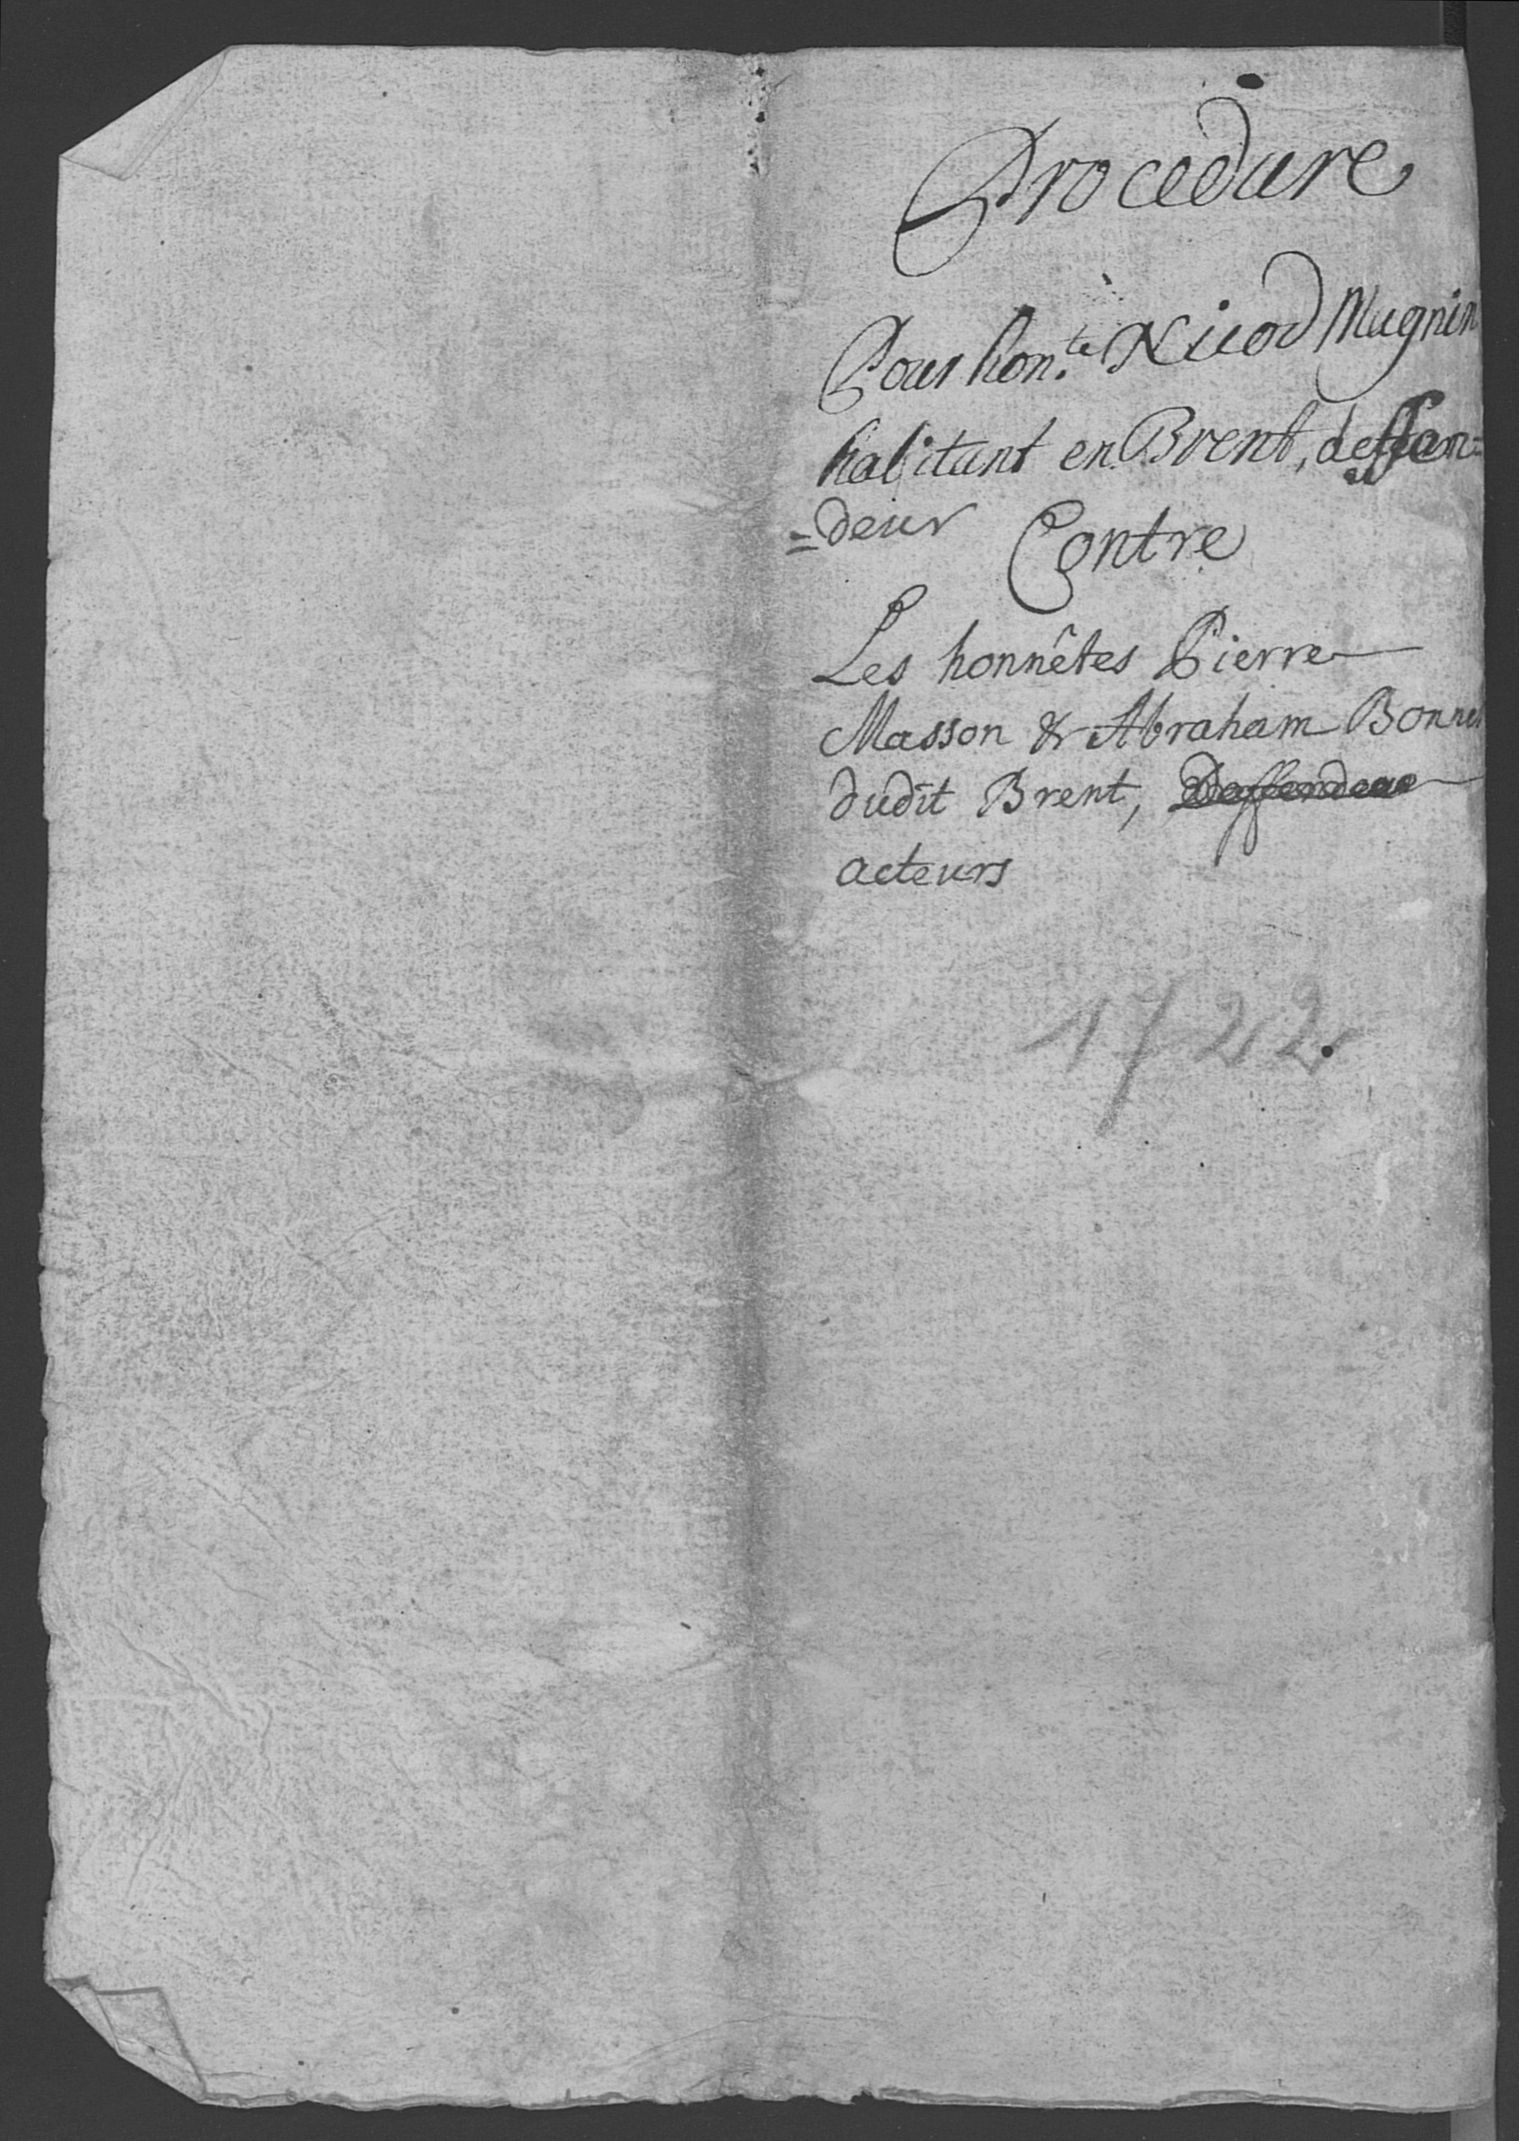 Procedure
Pour hon.te Nicod Mugnin
habitant en Brent, deffan=
=deur
Contre
Les honnêtes Pierre
Masson & Abraham Bonnet
dudit Brent, Deffendeur
acteurs
1722.